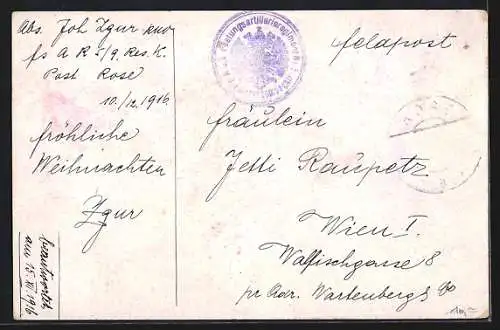 Abs. Joh Zgur
fs A R 5/9. Res. K.
Post Rose
10./12. 1916
fröhliche
Weihnachten
Zgur
beantwortet
am 15 XII 1916
Feldpost
Fräulein
Jetti Raupetz
Wien I.
Wallfischgasse 8
pr Adr. Wartenberg &